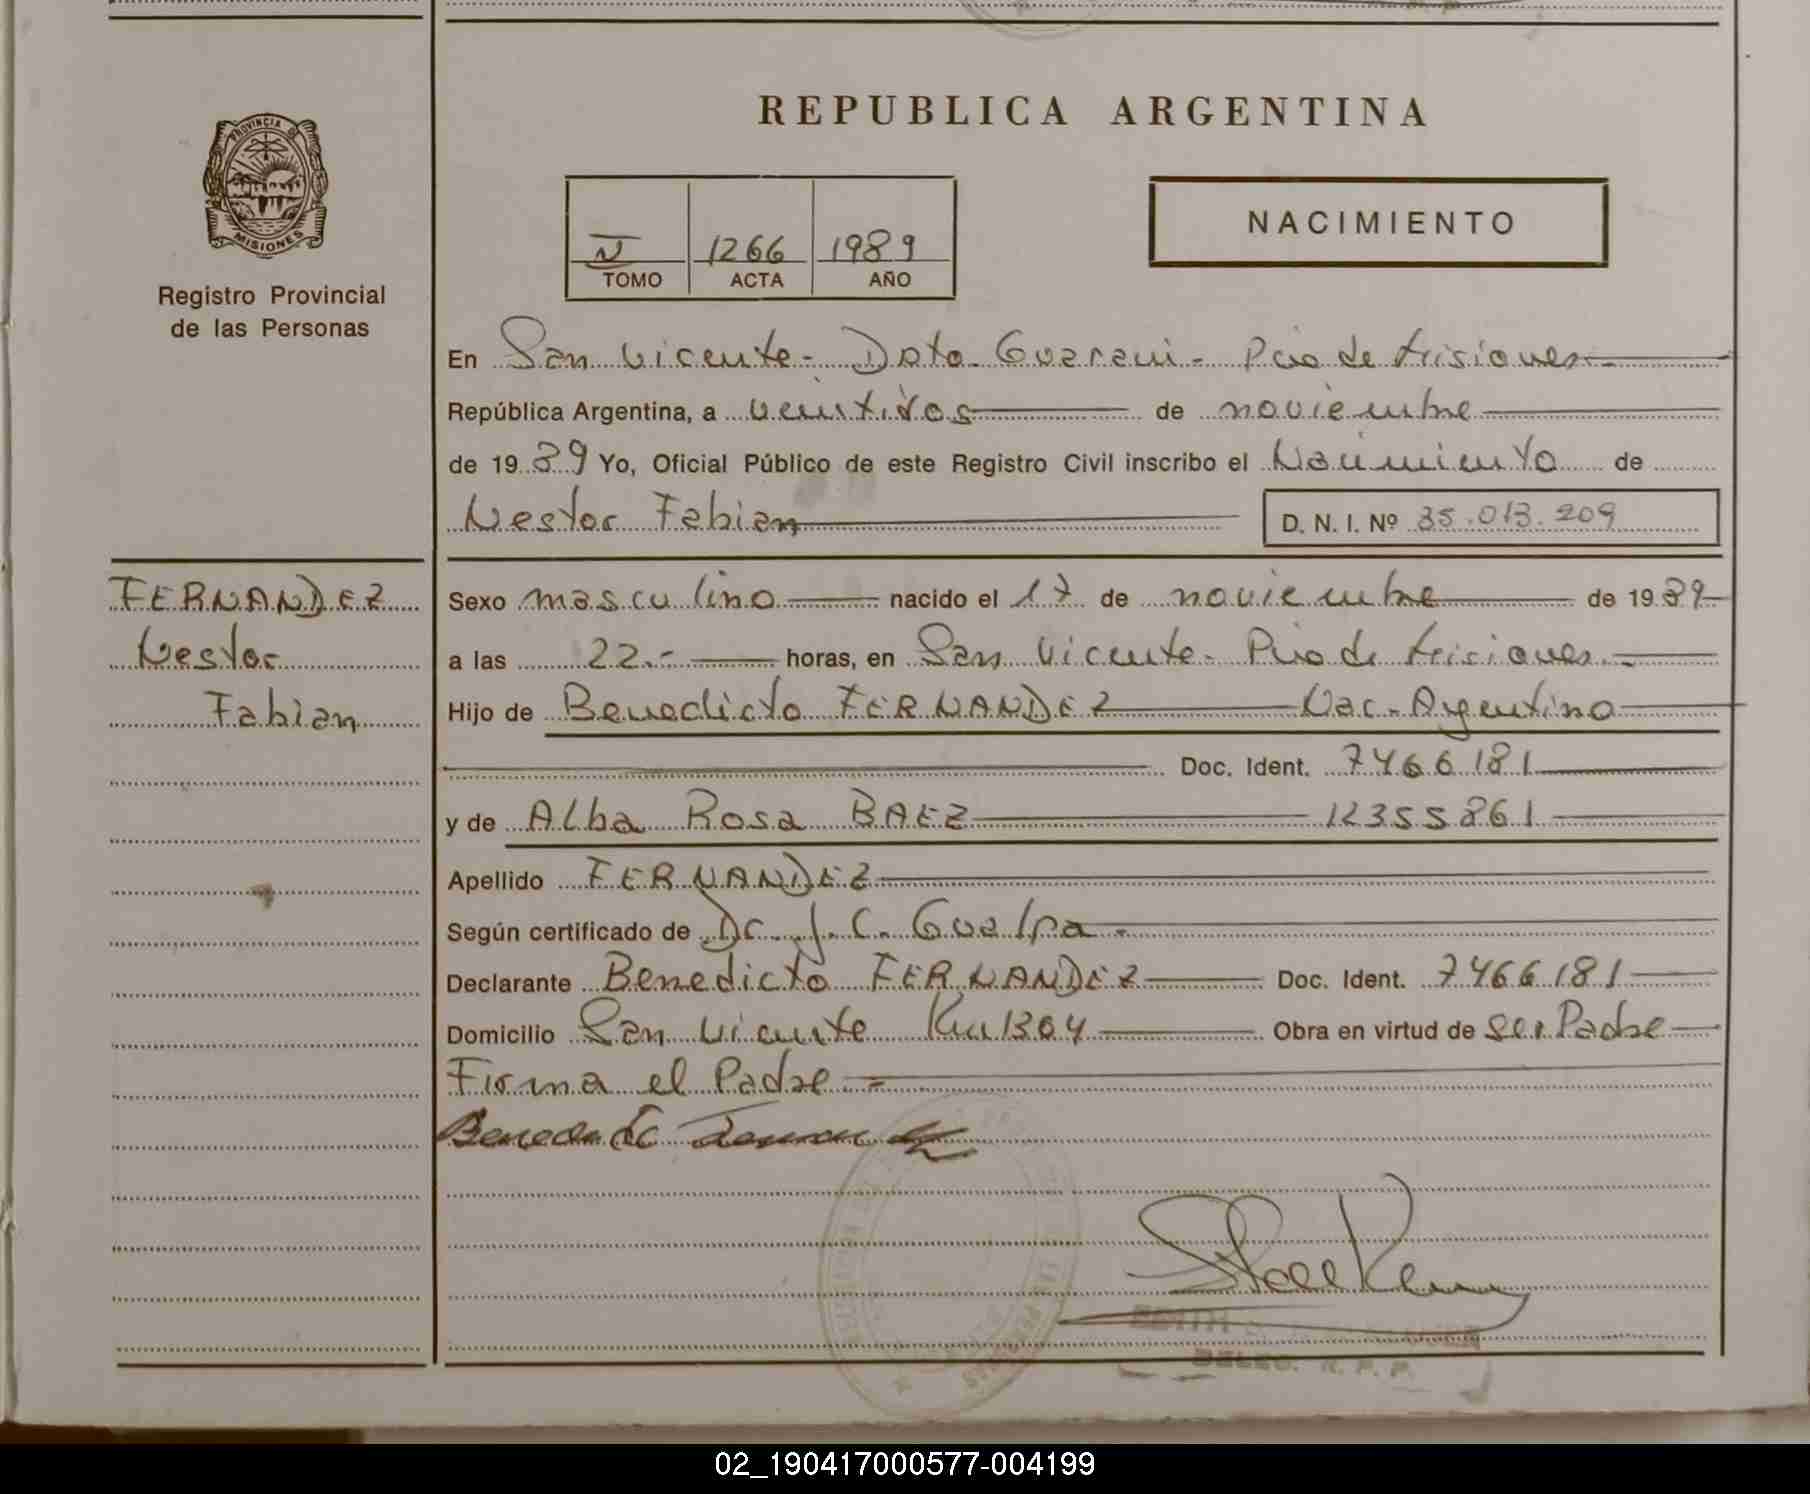 REPUBLICA ARGENTINA
PROVINCIA DE
MISIONES
Registro Provincial
de las Personas
1266 1989
TOMO ACTA AÑO
NACIMIENTO
En San Vicente - Dpto. Guarani - Pcia de Misiones
República Argentina, a veintidos de noviembre
de 1989 Yo, Oficial Público de este Registro Civil inscribo el Nacimiento de
Nestor Fabian D. N. I. Nº 35.013.209
FERNANDEZ
Nestor
Fabian
Sexo masculino nacido el 17 de noviembre de 1989
a las 22.- horas, en San Vicente - Pcia de Misiones.-
Hijo de Benedicto FERNANDEZ Nac. Argentino
Doc. Ident. 7466181
y de Alba Rosa BAEZ 12355861
Apellido FERNANDEZ
Según certificado de Dr. J. C. Gualpa.-
Declarante Benedicto FERNANDEZ Doc. Ident. 7466181
Domicilio San Vicente Km 1304 Obra en virtud de ser Padre
Firma el Padre =
Benedicto Fernandez
DELEG. R. P. P.
02_190417000577-004199